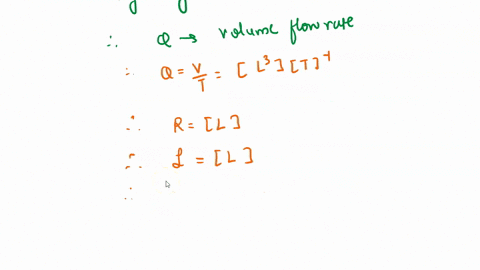 ∴ Q → volume flow rate
∴ Q = V/T = [L³][T]⁻¹
∴ R = [L]
∴ L = [L]
∴